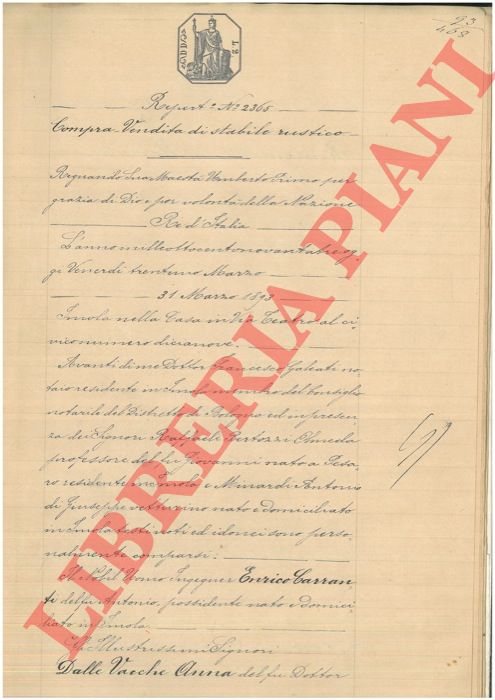 93
468
Repert.o No 2365
Compra-Vendita di stabile rustico
Regnando Sua Maestà Umberto Primo per
grazia di Dio e per volontà della Nazione
Re d'Italia
L'anno milleottocentonovantatre og-
gi Venerdì trentuno Marzo
31 Marzo 1893
Imola nella Casa in Via Teatro al ci-
vico numero dicianove.
Avanti di me Dottor Francesco Galeati no-
taio residente in Imola membro del Consiglio
notarile del Distretto di Bologna ed in presen-
za dei Signori Raffaeli Bertozzi Olmeda
professore del fu Giovanni nato a Pesa-
ro residente in Imola e Minardi Antonio
di Giuseppe vetturino nato e domiciliato
in Imola testi noti ed idonei sono perso-
nalmente comparsi:
Il Nobil Uomo Ingegner Enrico Carran-
ti del fu Antonio, possidente nato e domici-
liato in Imola
Gl'Illustrissimi Signori
Dalle Vacche Anna del fu Dottor
LIBRERIA PIANI